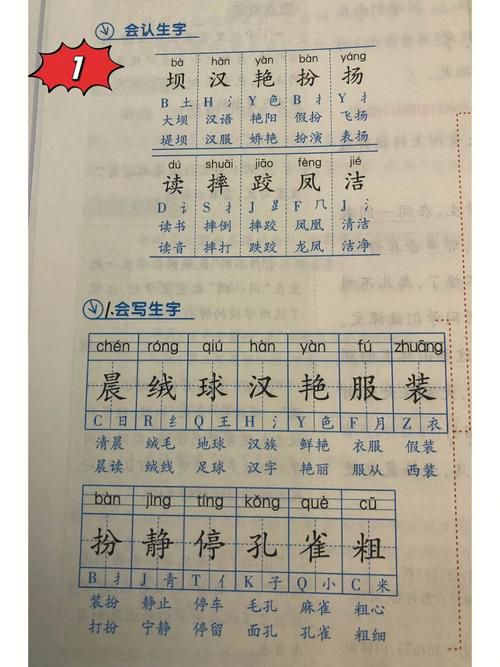 1
会认生字
bà hàn yàn bàn yáng
坝 汉 艳 扮 扬
B 土 H 氵 Y 色 B 扌 Y 扌
大坝 汉语 艳阳 假扮 飞扬
堤坝 汉服 娇艳 扮演 表扬
dú shuāi jiāo fèng jié
读 摔 跤 凤 洁
D 讠 S 扌 J 𧾷 F 几 J 氵
读书 摔倒 摔跤 凤凰 清洁
读音 摔打 跌跤 龙凤 洁净
会写生字
chén róng qiú hàn yàn fú zhuāng
晨 绒 球 汉 艳 服 装
C 日 R 纟 Q 王 H 氵 Y 色 F 月 Z 衣
清晨 绒毛 地球 汉族 鲜艳 衣服 假装
晨读 绒线 足球 汉字 艳丽 服从 西装
bàn jìng tíng kǒng què cū
扮 静 停 孔 雀 粗
B 扌 J 青 T 亻 K 子 Q 小 C 米
装扮 静止 停车 毛孔 麻雀 粗心
打扮 宁静 停留 面孔 孔雀 粗细